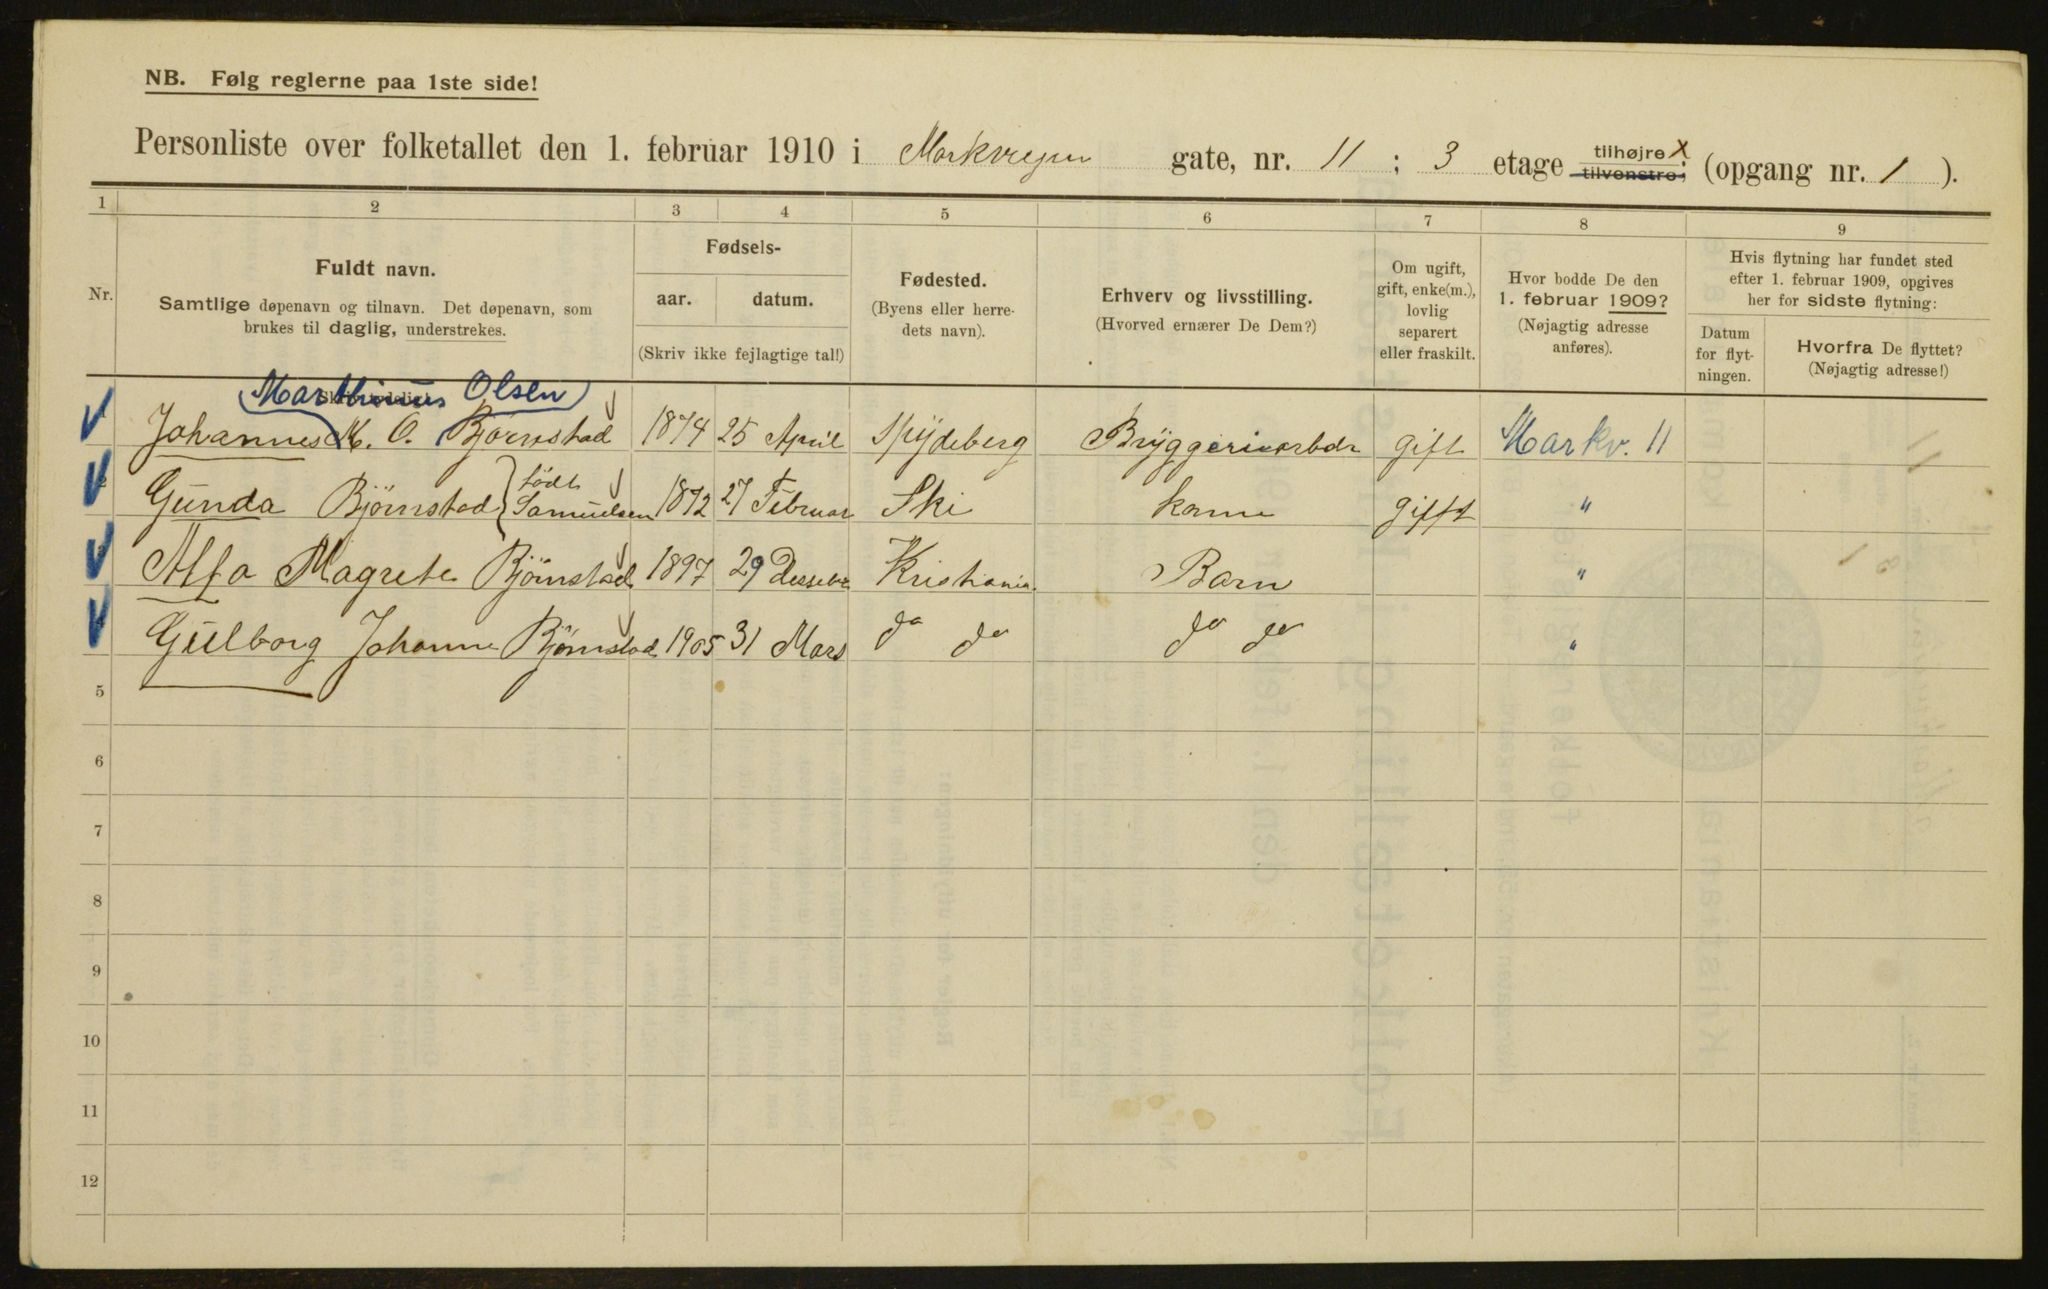 NB. Følg reglerne paa 1ste side!
Personliste over folketallet den 1. februar 1910 i Markveyen gate, nr. 11 ; 3 etage tilhøjre X tilvenstre; (opgang nr. 1 ).
1 2 3 4 5 6 7 8 9
Nr.
Fuldt navn.
Samtlige døpenavn og tilnavn. Det døpenavn, som
brukes til daglig, understrekes.
Fødsels-
aar. datum.
(Skriv ikke fejlagtige tal!)
Fødested.
(Byens eller herre-
dets navn).
Erhverv og livsstilling.
(Hvorved ernærer De Dem?)
Om ugift,
gift, enke(m.),
lovlig
separert
eller fraskilt.
Hvor bodde De den
1. februar 1909?
(Nøjagtig adresse
anføres).
Hvis flytning har fundet sted
efter 1. februar 1909, opgives
her for sidste flytning:
Datum
for flyt-
ningen.
Hvorfra De flyttet?
(Nøjagtig adresse!)
Marthinus Olsen
Johannes M. O. Bjørnstad 1874 25 April Spydeberg Bryggeriarbdr gift Markv. 11
Gunda Bjørnstad født Samuelsen 1872 27 Februar Ski kone gift "
Alfa Magrete Bjørnstad 1897 29 Kristiania Barn "
Gulborg Johanne Bjørnstad 1905 31 Mars do do do do "
5
6
7
8
9
10
11
12